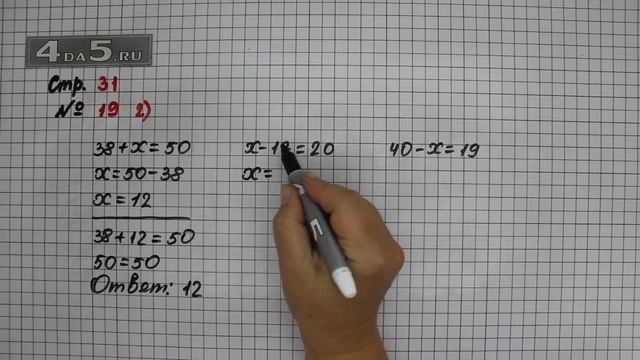 4DA5.RU
Стр. 31
№ 19 2)
38+x=50
x=50-38
x=12
38+12=50
50=50
Ответ: 12
x- =20
x=
40-x=19